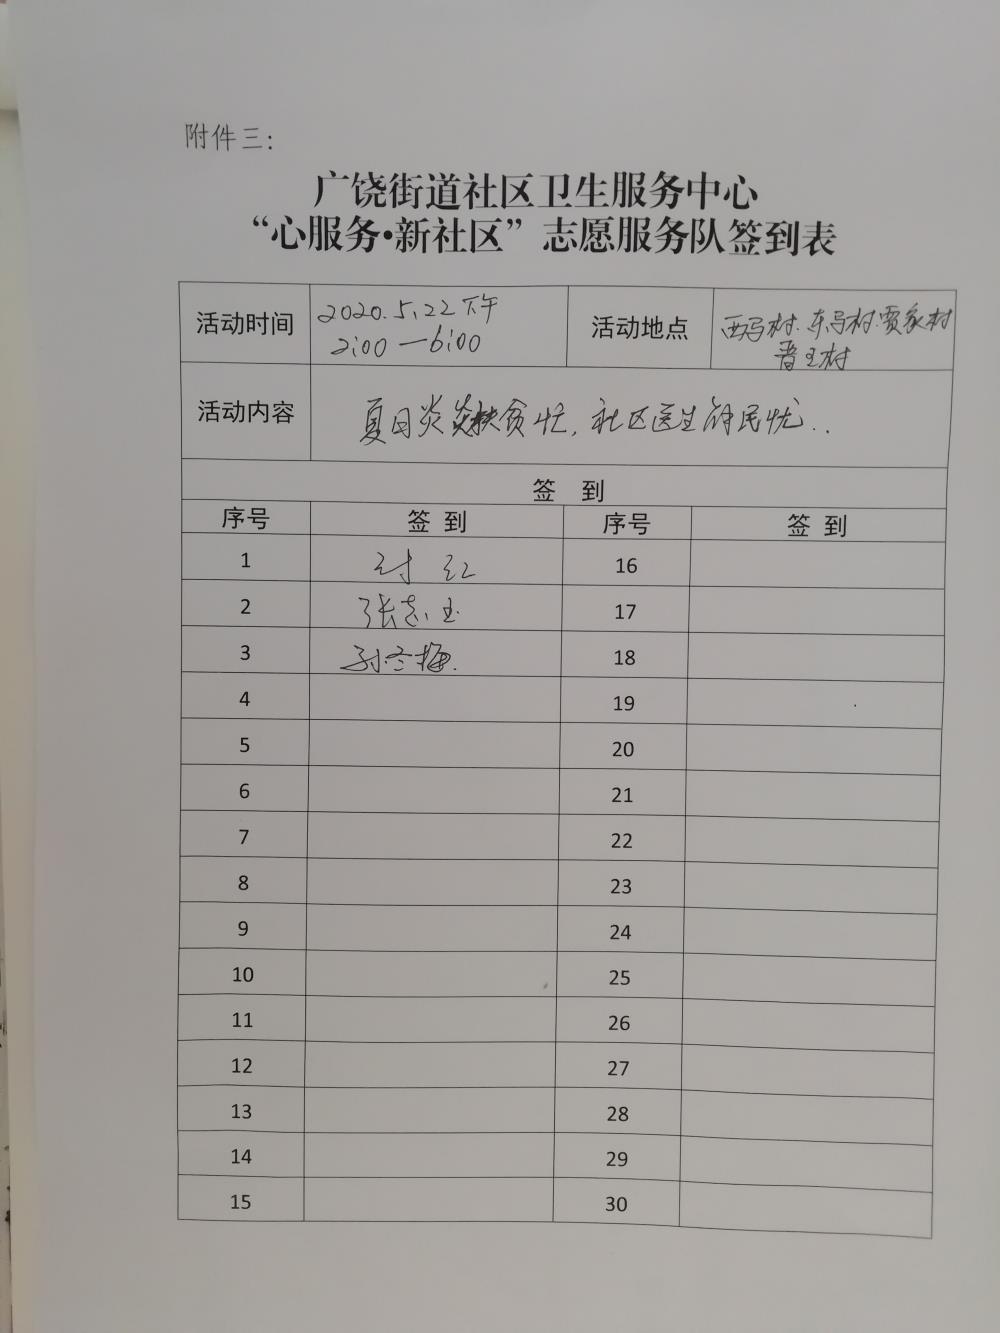 附件三：
广饶街道社区卫生服务中心
“心服务·新社区”志愿服务队签到表
活动时间 2020.5.22下午 活动地点 西马村.东马村.贾家村
2:00—6:00 晋王村
活动内容 夏日炎炎扶贫忙,社区医生解民忧..
签 到
序号 签 到 序号 签 到
1 红 16
2 张志玉 17
3 孙冬梅. 18
4 19
5 20
6 21
7 22
8 23
9 24
10 25
11 26
12 27
13 28
14 29
15 30